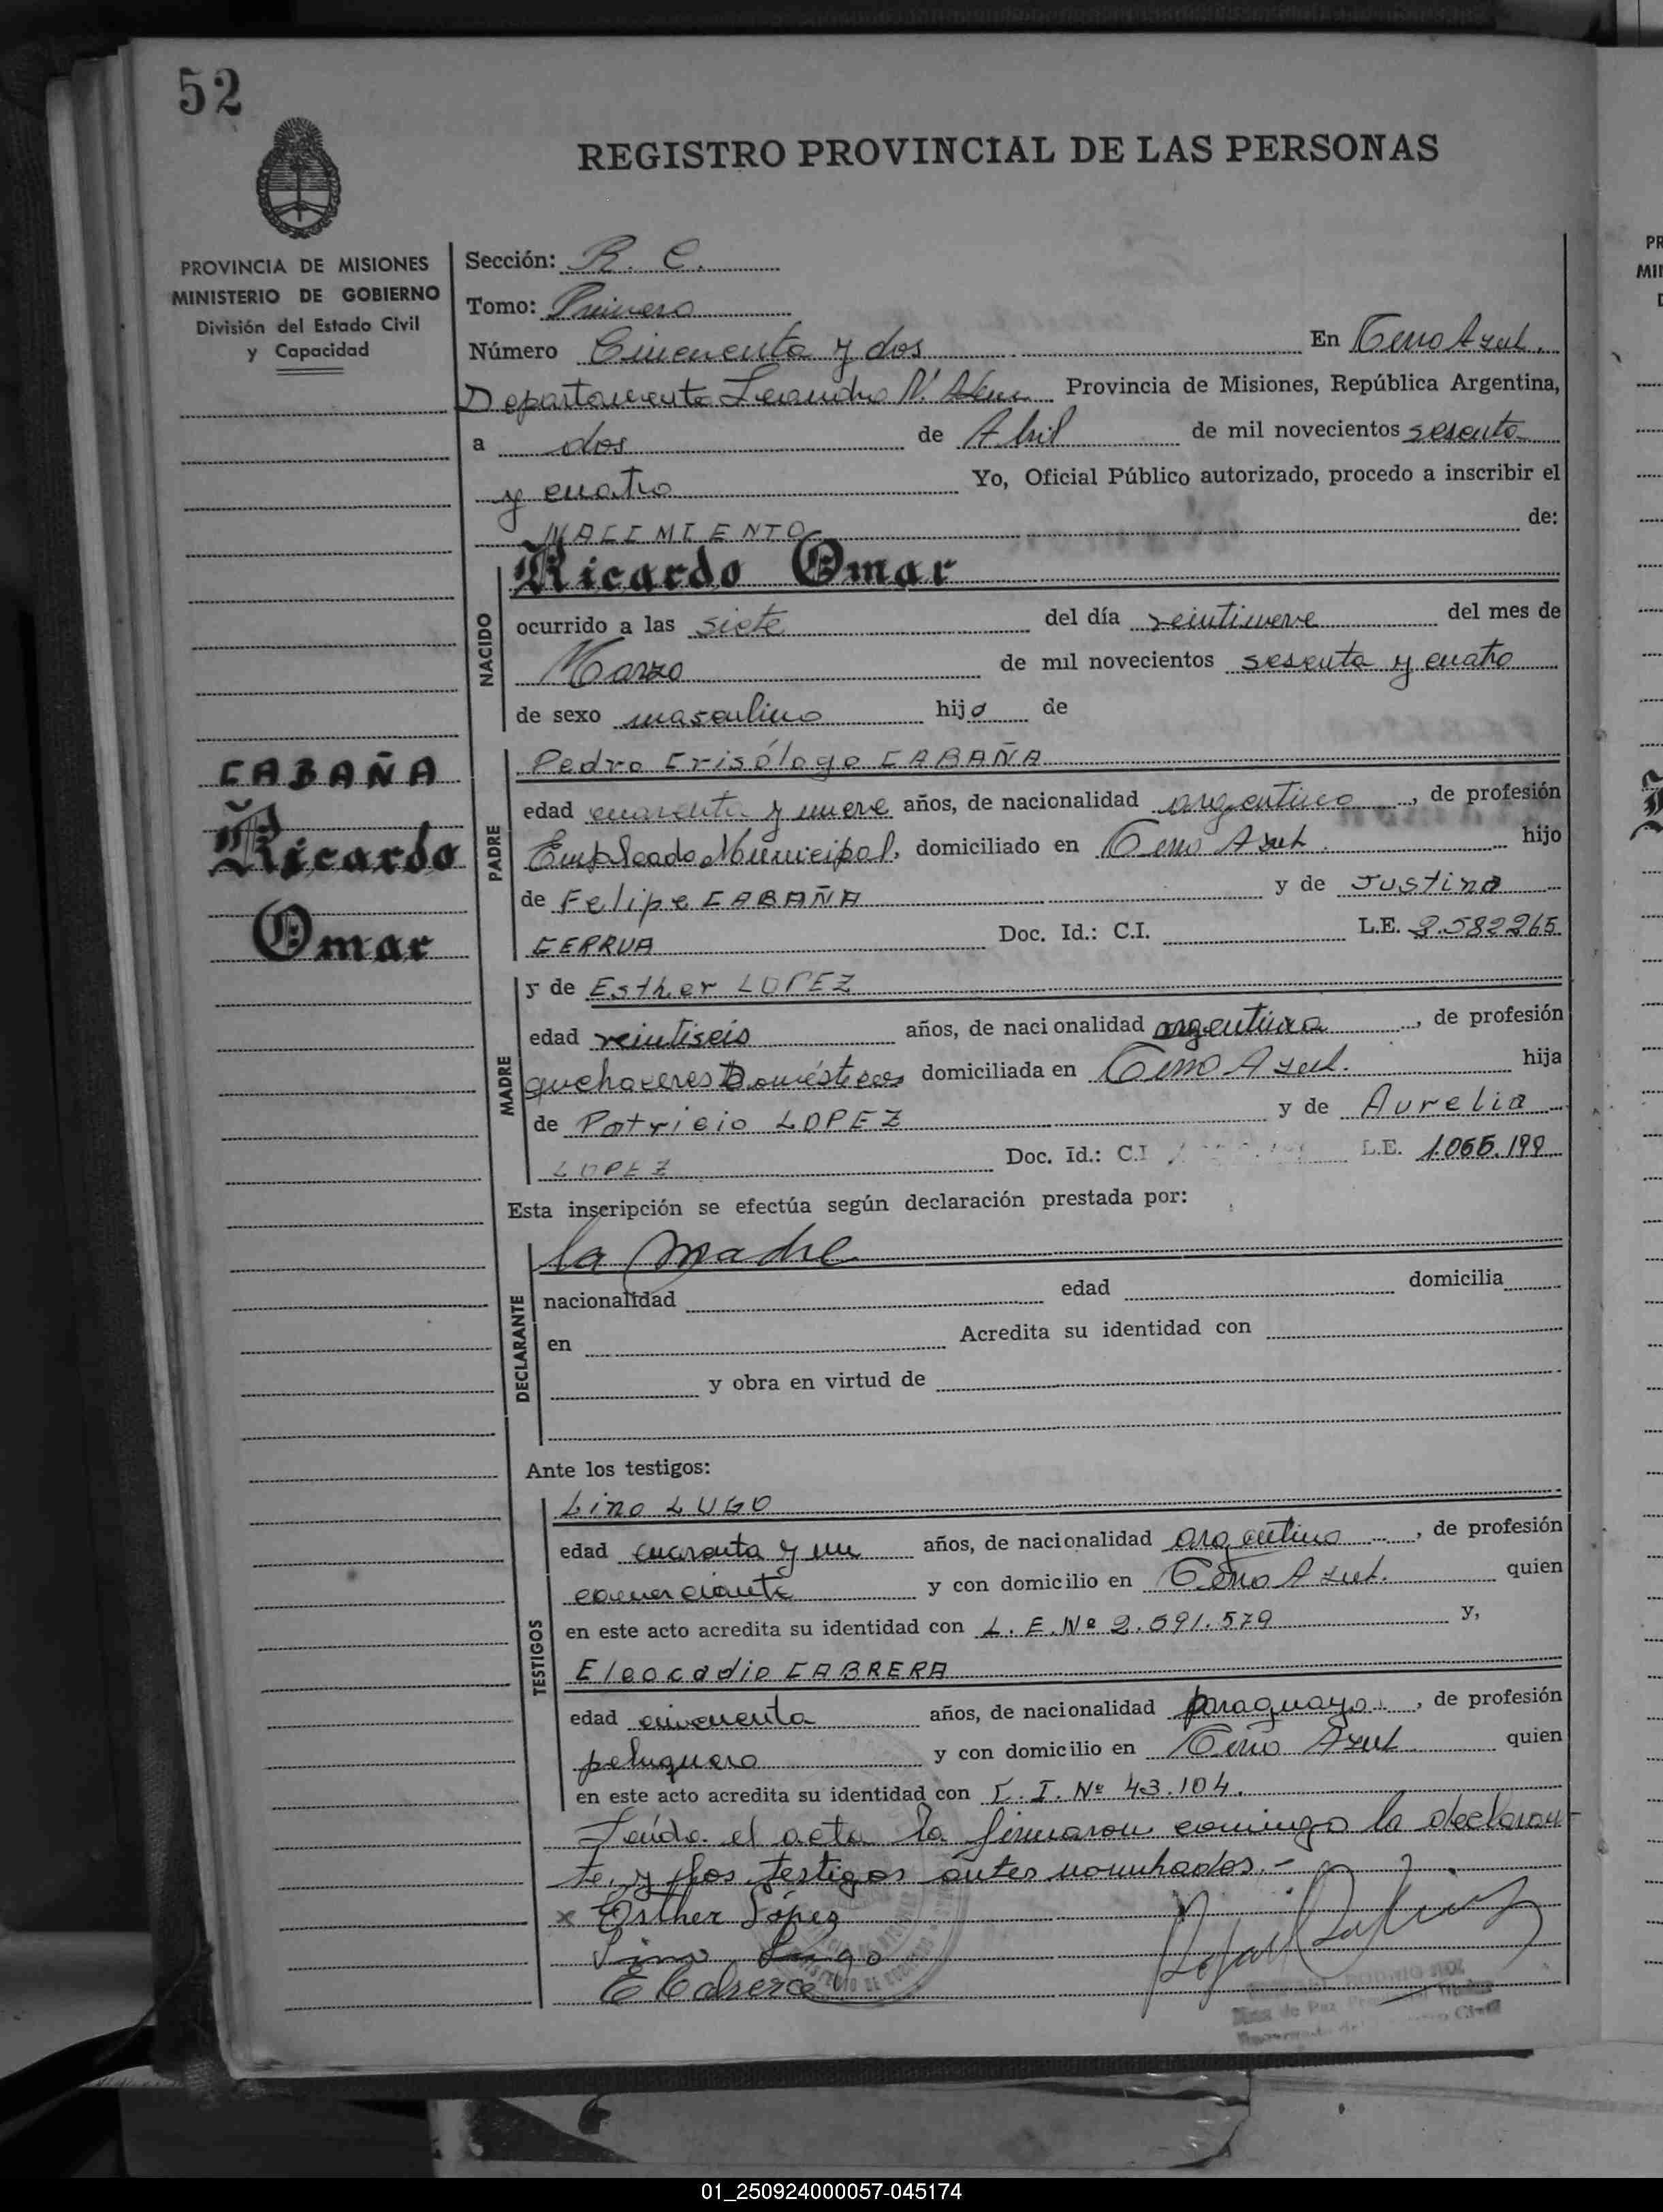 52
REGISTRO PROVINCIAL DE LAS PERSONAS
PROVINCIA DE MISIONES
MINISTERIO DE GOBIERNO
División del Estado Civil
y Capacidad
Sección: R. C.
Tomo: Primero
Número Cincuenta y dos En Cerro Azul,
Departamento Leandro N. Alem Provincia de Misiones, República Argentina,
a dos de Abril de mil novecientos sesenta
y cuatro Yo, Oficial Público autorizado, procedo a inscribir el
NACIMIENTO de:
NACIDO
Ricardo Omar
ocurrido a las siete del día veintinueve del mes de
Marzo de mil novecientos sesenta y cuatro
de sexo masculino hijo de
CABAÑA
Ricardo
Omar
PADRE
Pedro Crisólogo CABAÑA
edad cuarenta y nueve años, de nacionalidad argentino, de profesión
Empleado Municipal, domiciliado en Cerro Azul. hijo
de Felipe CABAÑA y de Justina
CERRUA Doc. Id.: C.I. L.E.
MADRE
y de Esther LOPEZ
edad veintiseis años, de nacionalidad argentina, de profesión
quehaceres Domésticos domiciliada en Cerro Azul. hija
de Patricio LOPEZ y de Aurelia
LOPEZ Doc. Id.: C.I L.E. 1.065.199
Esta inscripción se efectúa según declaración prestada por:
DECLARANTE
la madre
nacionalidad edad domicilia
en Acredita su identidad con
y obra en virtud de
Ante los testigos:
TESTIGOS
Lino LUGO
edad cuarenta y un años, de nacionalidad argentino, de profesión
comerciante y con domicilio en Cerro Azul. quien
en este acto acredita su identidad con L. E. Nº 2.591.579 y,
Eleocadio CABRERA
edad cincuenta años, de nacionalidad paraguayo, de profesión
peluquero y con domicilio en Cerro Azul quien
en este acto acredita su identidad con C. I. Nº 43.104.
Leída el acta la firmaron conmigo la declaran-
te, y los testigos antes nombrados.-
x Esther López
Lino Lugo
E Cabrera
01_250924000057-045174